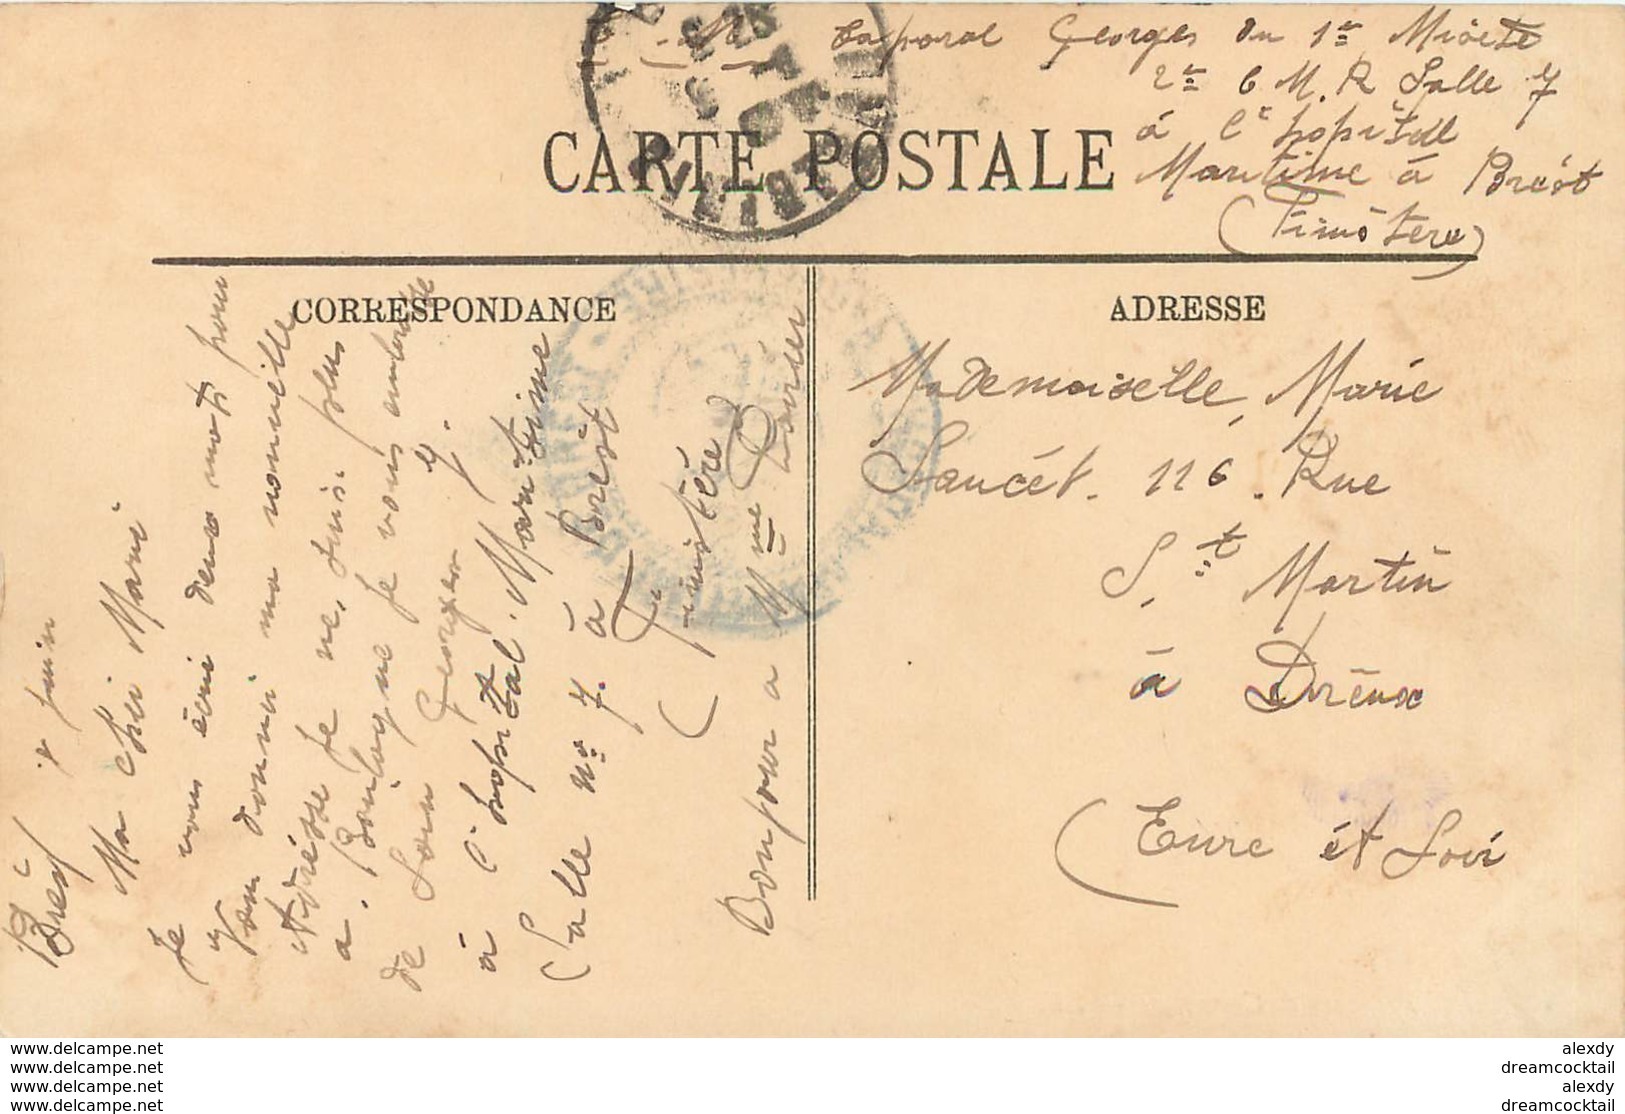 Caporal Georges du 1er Mixte
2e C M. R Salle 7
à l'hopitall
Maritime à Brést
(Finistère)
CARTE POSTALE
CORRESPONDANCE
ADRESSE
Brest juin
Ma cher Marie
Je vous écri deux mots pour
vous donner ma nouvelle
Adrésse Je ne suis plus
a Boulogne Je vous
de Georges
à l'hopital Maritime
Salle no 7. à Brést
(Finistère)
Bonjour a Mme
Mademoiselle, Marie
Saucét. 116. Rue
St Martin
à Dréux
(Eure ét Loir
www.delcampe.net
www.delcampe.net
www.delcampe.net
www.delcampe.net
alexdy
dreamcocktail
alexdy
dreamcocktail